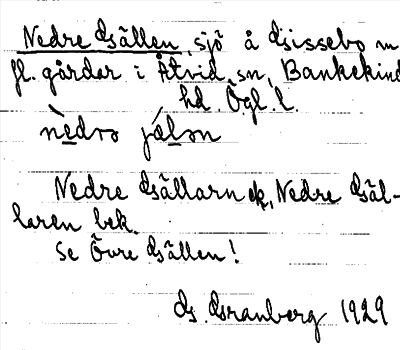 Nedre Gällen, sjö å Gissebo m
fl. gårdar i Åtvid sn, Bankekind
hd. Ögl. l.
nèdrə jǽlən
Nedre Gällarn ek, Nedre Gäl-
laren bek.
Se Övre Gällen!
G. Granberg 1929